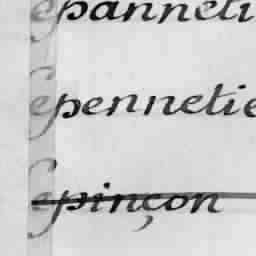 épanneti
épennetie
épinçon